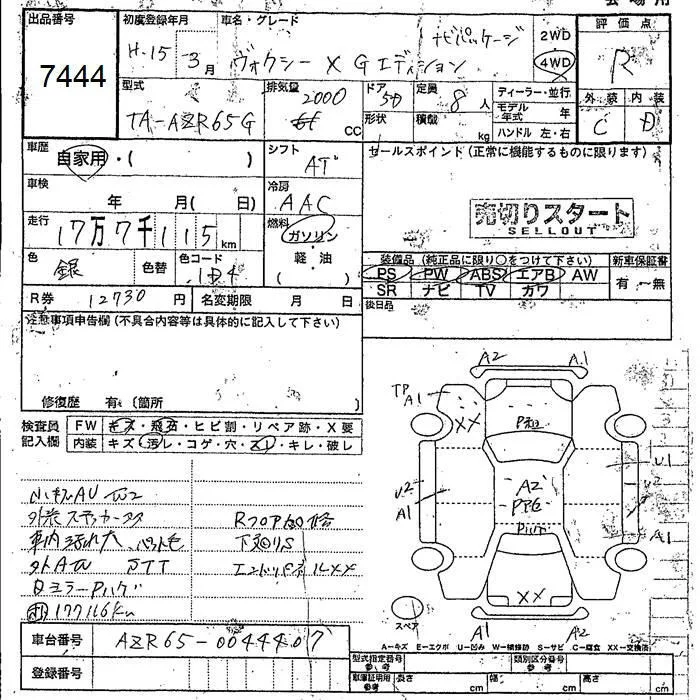 出品番号
7444
初度登録年月
H-15 - 3月
車名・グレード
ナビパッケージ
ヴォクシー X Gエディション
2WD
4WD
評価点
R
外装 内装
C D
型式
TA-AZR65G
排気量
2000
cc
ドア
5D
形状
定員
8人
積載
kg
ディーラー・並行
モデル年式 年
ハンドル 左・右
車歴
自家用・( )
シフト
AT
セールスポイント(正常に機能するものに限ります)
車検
年 月( 日)
冷房
AAC
売切りスタート
SELLOUT
走行
17万7千115km
燃料
ガソリン
軽・油
( )
色
銀
色替
色コード
1D4
装備品(純正品に限り○をつけて下さい)
PS PW ABS エアB AW
SR ナビ TV カワ
新車保証書
有・無
R券 12730円
名変期限 月 日
後日品
注意事項申告欄(不具合内容等は具体的に記入して下さい)
修復歴 有(箇所
検査員記入欄
FW キズ・飛石・ヒビ割・リペア跡・X要
内装 キズ・汚レ・コゲ・穴・スレ・キレ・破レ
Rフロア
下回りS
XX
177116km
車台番号 AZR65-0044407
登録番号
A2 A1
TP
A1
XX
A2
U2
A1
U1
U2
A1
XX
スペア
A1 A2
A-キズ E-エクボ U-凹み W-補修跡 S-サビ C-腐食 XX-交換済
型式指定番号 参考
類別区分番号 参考
車庫証明用 参考
長さ cm 幅 cm 高さ cm